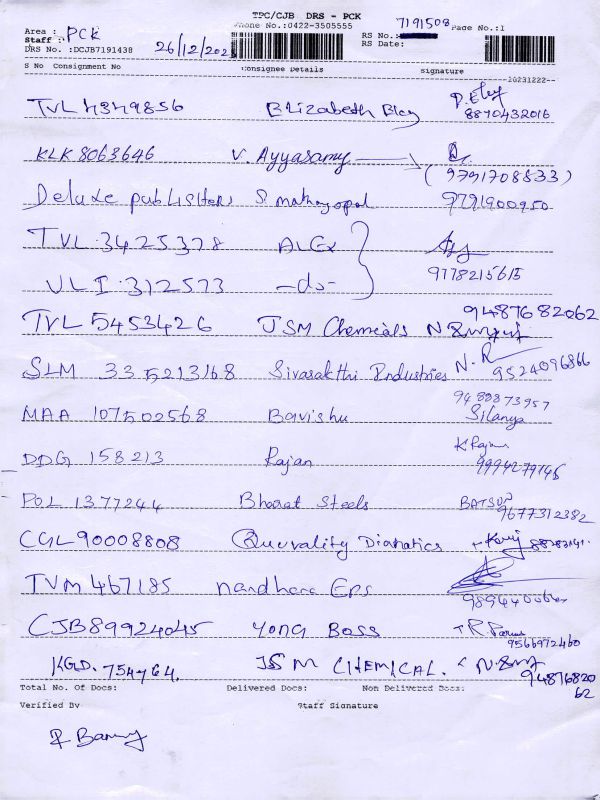 TPC/CJB DRS - PCK
Phone No.:0422-3505555
Area : PCK
Staff :
DRS No. :DCJB7191438
26/12/202
RS No.: 7191508
RS Date:
Page No.:1
S No Consignment No Consignee Details Signature
20231222--
TVL 4349856 Elizabeth D.Elzy
8870432016
KLK 8063646 V. Ayyasamy
(9791708833)
Deluxe publishers S. mathagopal 9791900950
TVL.3425378 ALEX
VLI.312573 -do- 9778215615
TVL 5453426 JSM Chemicals 9487682062
SLM 335213168 Sivasakthi Industries N.R
9524096866
MAA 107502568 Bavishu 9489873957
Silanya
DDG 158213 Rajan K Rajan
9994279145
POL 1377244 Bharat Steels BATSUP
9677312382
CGL90008808 Quevality Diamatics
TVM 467185 nandhana Eps
CJB89924045 YONG BOSS R.
9566972460
KGD. 754764. JSM CHEMICAL.
94876820
62
Total No. Of Docs: Delivered Docs: Non Delivered Docs:
Verified By Staff Signature